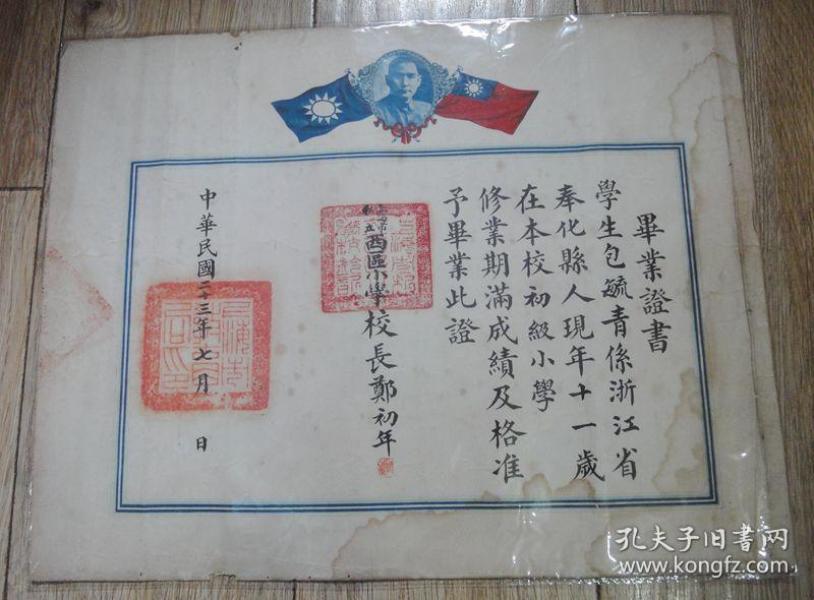 畢業證書
學生包毓青係浙江省
奉化縣人現年十一歲
在本校初級小學
修業期滿成績及格准
予畢業此證
西區小學校長鄭初年
中華民國二十三年七月 日
孔夫子旧书网
www.kongfz.com